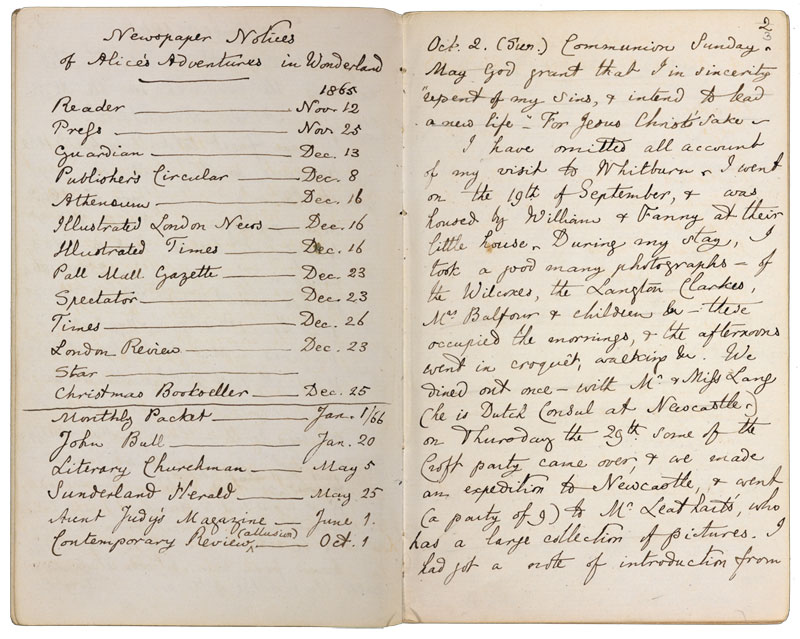 Newspaper Notices
of Alice's Adventures in Wonderland
1865
Reader — Nov. 12
Press — Nov. 25
Guardian — Dec. 13
Publisher's Circular — Dec. 8
Athenæum — Dec. 16
Illustrated London News — Dec. 16
Illustrated Times — Dec. 16
Pall Mall Gazette — Dec. 23
Spectator — Dec. 23
Times — Dec. 26
London Review — Dec. 23
Star —
Christmas Bookseller — Dec. 25
Monthly Packet — Jan. 1/66
John Bull — Jan. 20
Literary Churchman — May 5
Sunderland Herald — May 25
Aunt Judy's Magazine — June 1.
Contemporary Review (allusion) — Oct. 1
Oct. 2. (Sun.) Communion Sunday.
May God grant that I in sincerity
"repent of my sins, & intend to lead
a new life" – For Jesus Christ's sake –
I have omitted all account
of my visit to Whitburn. I went
on the 19th of September, & was
housed by William & Fanny at their
little house. During my stay, I
took a good many photographs – of
the Wilcoxes, the Langton Clarkes,
Mrs Balfour & children &c – these
occupied the mornings, & the afternoons
went in croquêt, walking &c. We
dined out once – with Mr. & Miss Lang
(he is Dutch Consul at Newcastle.)
on Thursday the 29th. some of the
Croft party came over, & we made
an expedition to Newcastle, & went
(a party of 9) to Mr. Leathart's, who
has a large collection of pictures. I
had got a note of introduction from